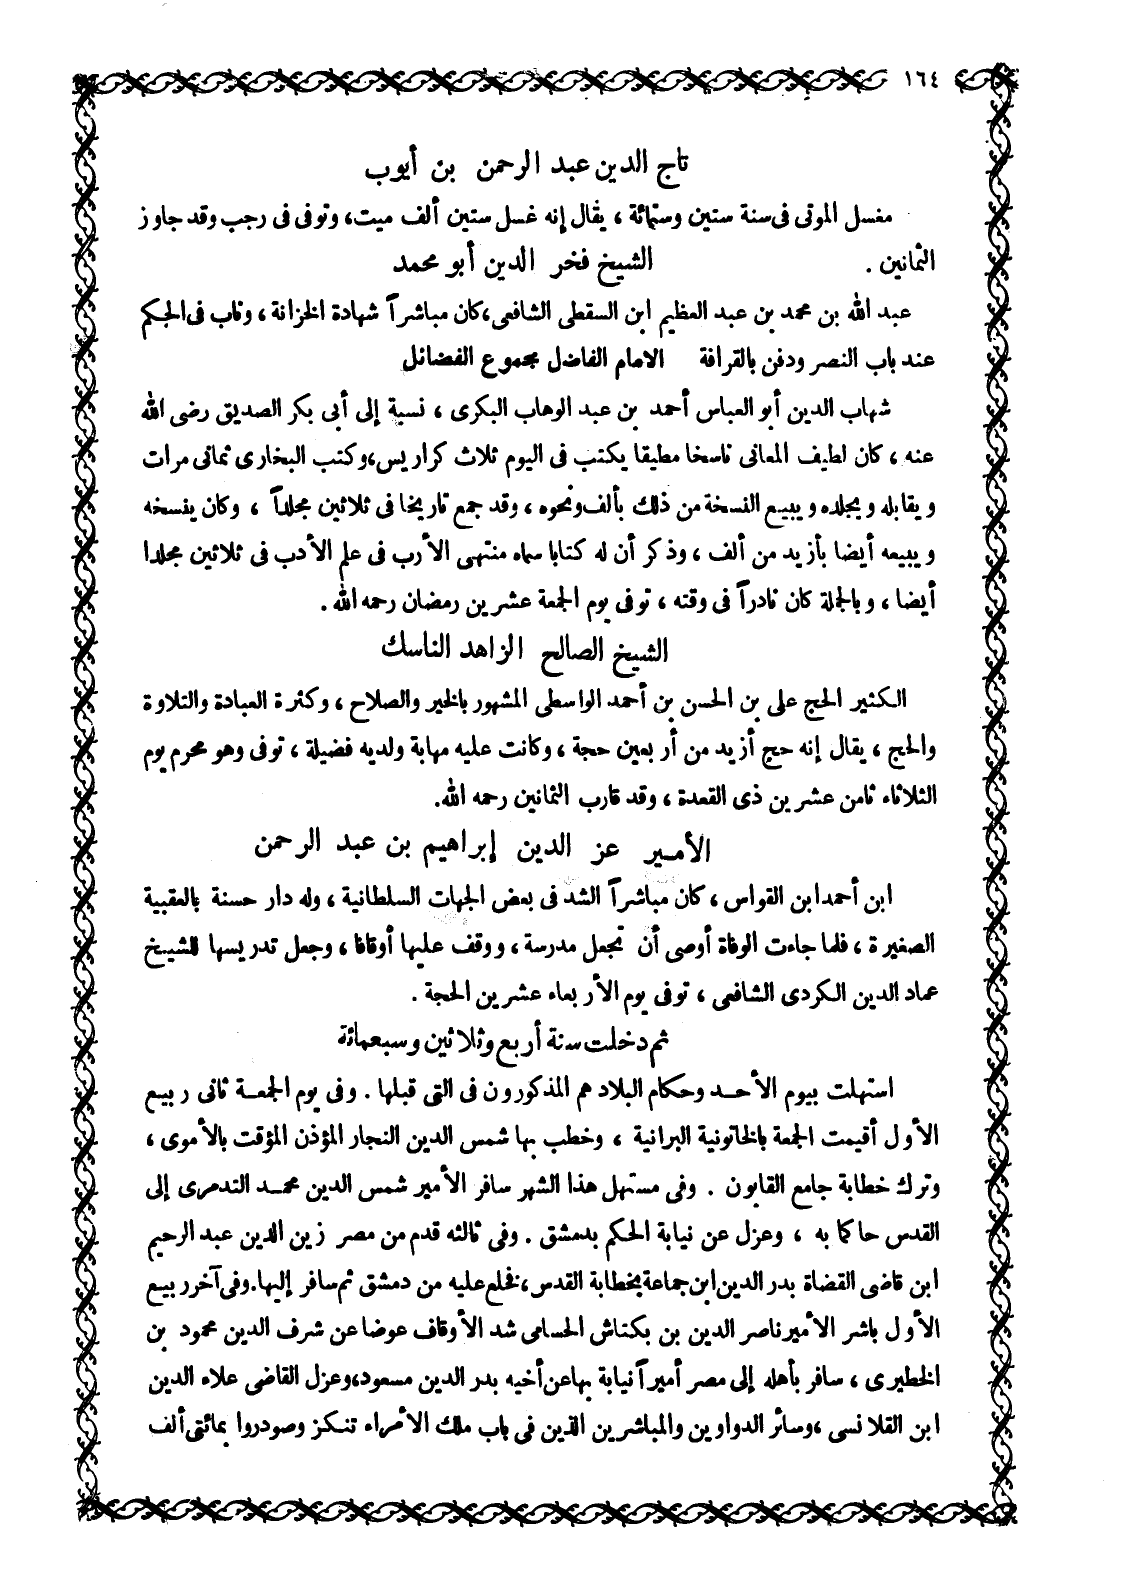 ١٦٤
تاج الدين عبد الرحمن بن أيوب
مغسل الموتى فى سنة ستين وستمائة ، يقال إنه غسل ستين ألف ميت، وتوفى فى رجب وقد جاوز
الثمانين . الشيخ فخر الدين أبو محمد
عبد الله بن محمد بن عبد العظيم ابن السقطى الشافعى، كان مباشراً شهادة الخزانة ، وناب فى الحكم
عند باب النصر ودفن بالقرافة الامام الفاضل مجموع الفضائل
شهاب الدين أبو العباس أحمد بن عبد الوهاب البكرى ، نسبة إلى أبى بكر الصديق رضى الله
عنه ، كان لطيف المعانى ناسخا مطيقا يكتب فى اليوم ثلاث كراريس، وكتب البخارى ثمانى مرات
ويقابله ويجلده ويبيع النسخة من ذلك بألف ونحوه ، وقد جمع تاريخا فى ثلاثين مجلداً ، وكان ينسخه
ويبيعه أيضا بأزيد من ألف ، وذكر أن له كتابا سماه منتهى الأرب فى علم الأدب فى ثلاثين مجلدا
أيضا ، وبالجملة كان نادراً فى وقته ، توفى يوم الجمعة عشرين رمضان رحمه الله .
الشيخ الصالح الزاهد الناسك
الكثير الحج على بن الحسن بن أحمد الواسطى المشهور بالخير والصلاح ، وكثرة العبادة والتلاوة
والحج ، يقال إنه حج أزيد من أربعين حجة ، وكانت عليه مهابة ولديه فضيلة ، توفى وهو محرم يوم
الثلاثاء ثامن عشرين ذى القعدة ، وقد قارب الثمانين رحمه الله.
الأمير عز الدين إبراهيم بن عبد الرحمن
ابن أحمد ابن القواس ، كان مباشراً الشد فى بعض الجهات السلطانية ، وله دار حسنة بالعقبية
الصغيرة ، فلما جاءت الوفاة أوصى أن تجعل مدرسة ، ووقف عليها أوقافا ، وجعل تدريسها للشيخ
عماد الدين الكردى الشافعى ، توفى يوم الأربعاء عشرين الحجة .
ثم دخلت سنة أربع وثلاثين وسبعمائة
استهلت بيوم الأحد وحكام البلاد هم المذكورون فى التى قبلها . وفى يوم الجمعة ثانى ربيع
الأول أقيمت الجمعة بالخاتونية البرانية ، وخطب بها شمس الدين النجار المؤذن المؤقت بالأموى ،
وترك خطابة جامع القابون . وفى مستهل هذا الشهر سافر الأمير شمس الدين محمد التدمرى إلى
القدس حاكما به ، وعزل عن نيابة الحكم بدمشق . وفى ثالثه قدم من مصر زين الدين عبد الرحيم
ابن قاضى القضاة بدر الدين ابن جماعة بخطابة القدس، فخلع عليه من دمشق ثم سافر إليها. وفى آخر ربيع
الأول باشر الأمير ناصر الدين بن بكتاش الحسامى شد الأوقاف عوضا عن شرف الدين محمود بن
الخطيرى ، سافر بأهله إلى مصر أميراً نيابة بها عن أخيه بدر الدين مسعود، وعزل القاضى علاء الدين
ابن القلانسى ، وسائر الدواوين والمباشرين الذين فى باب ملك الأمراء تنكز وصودروا بمائتى ألف